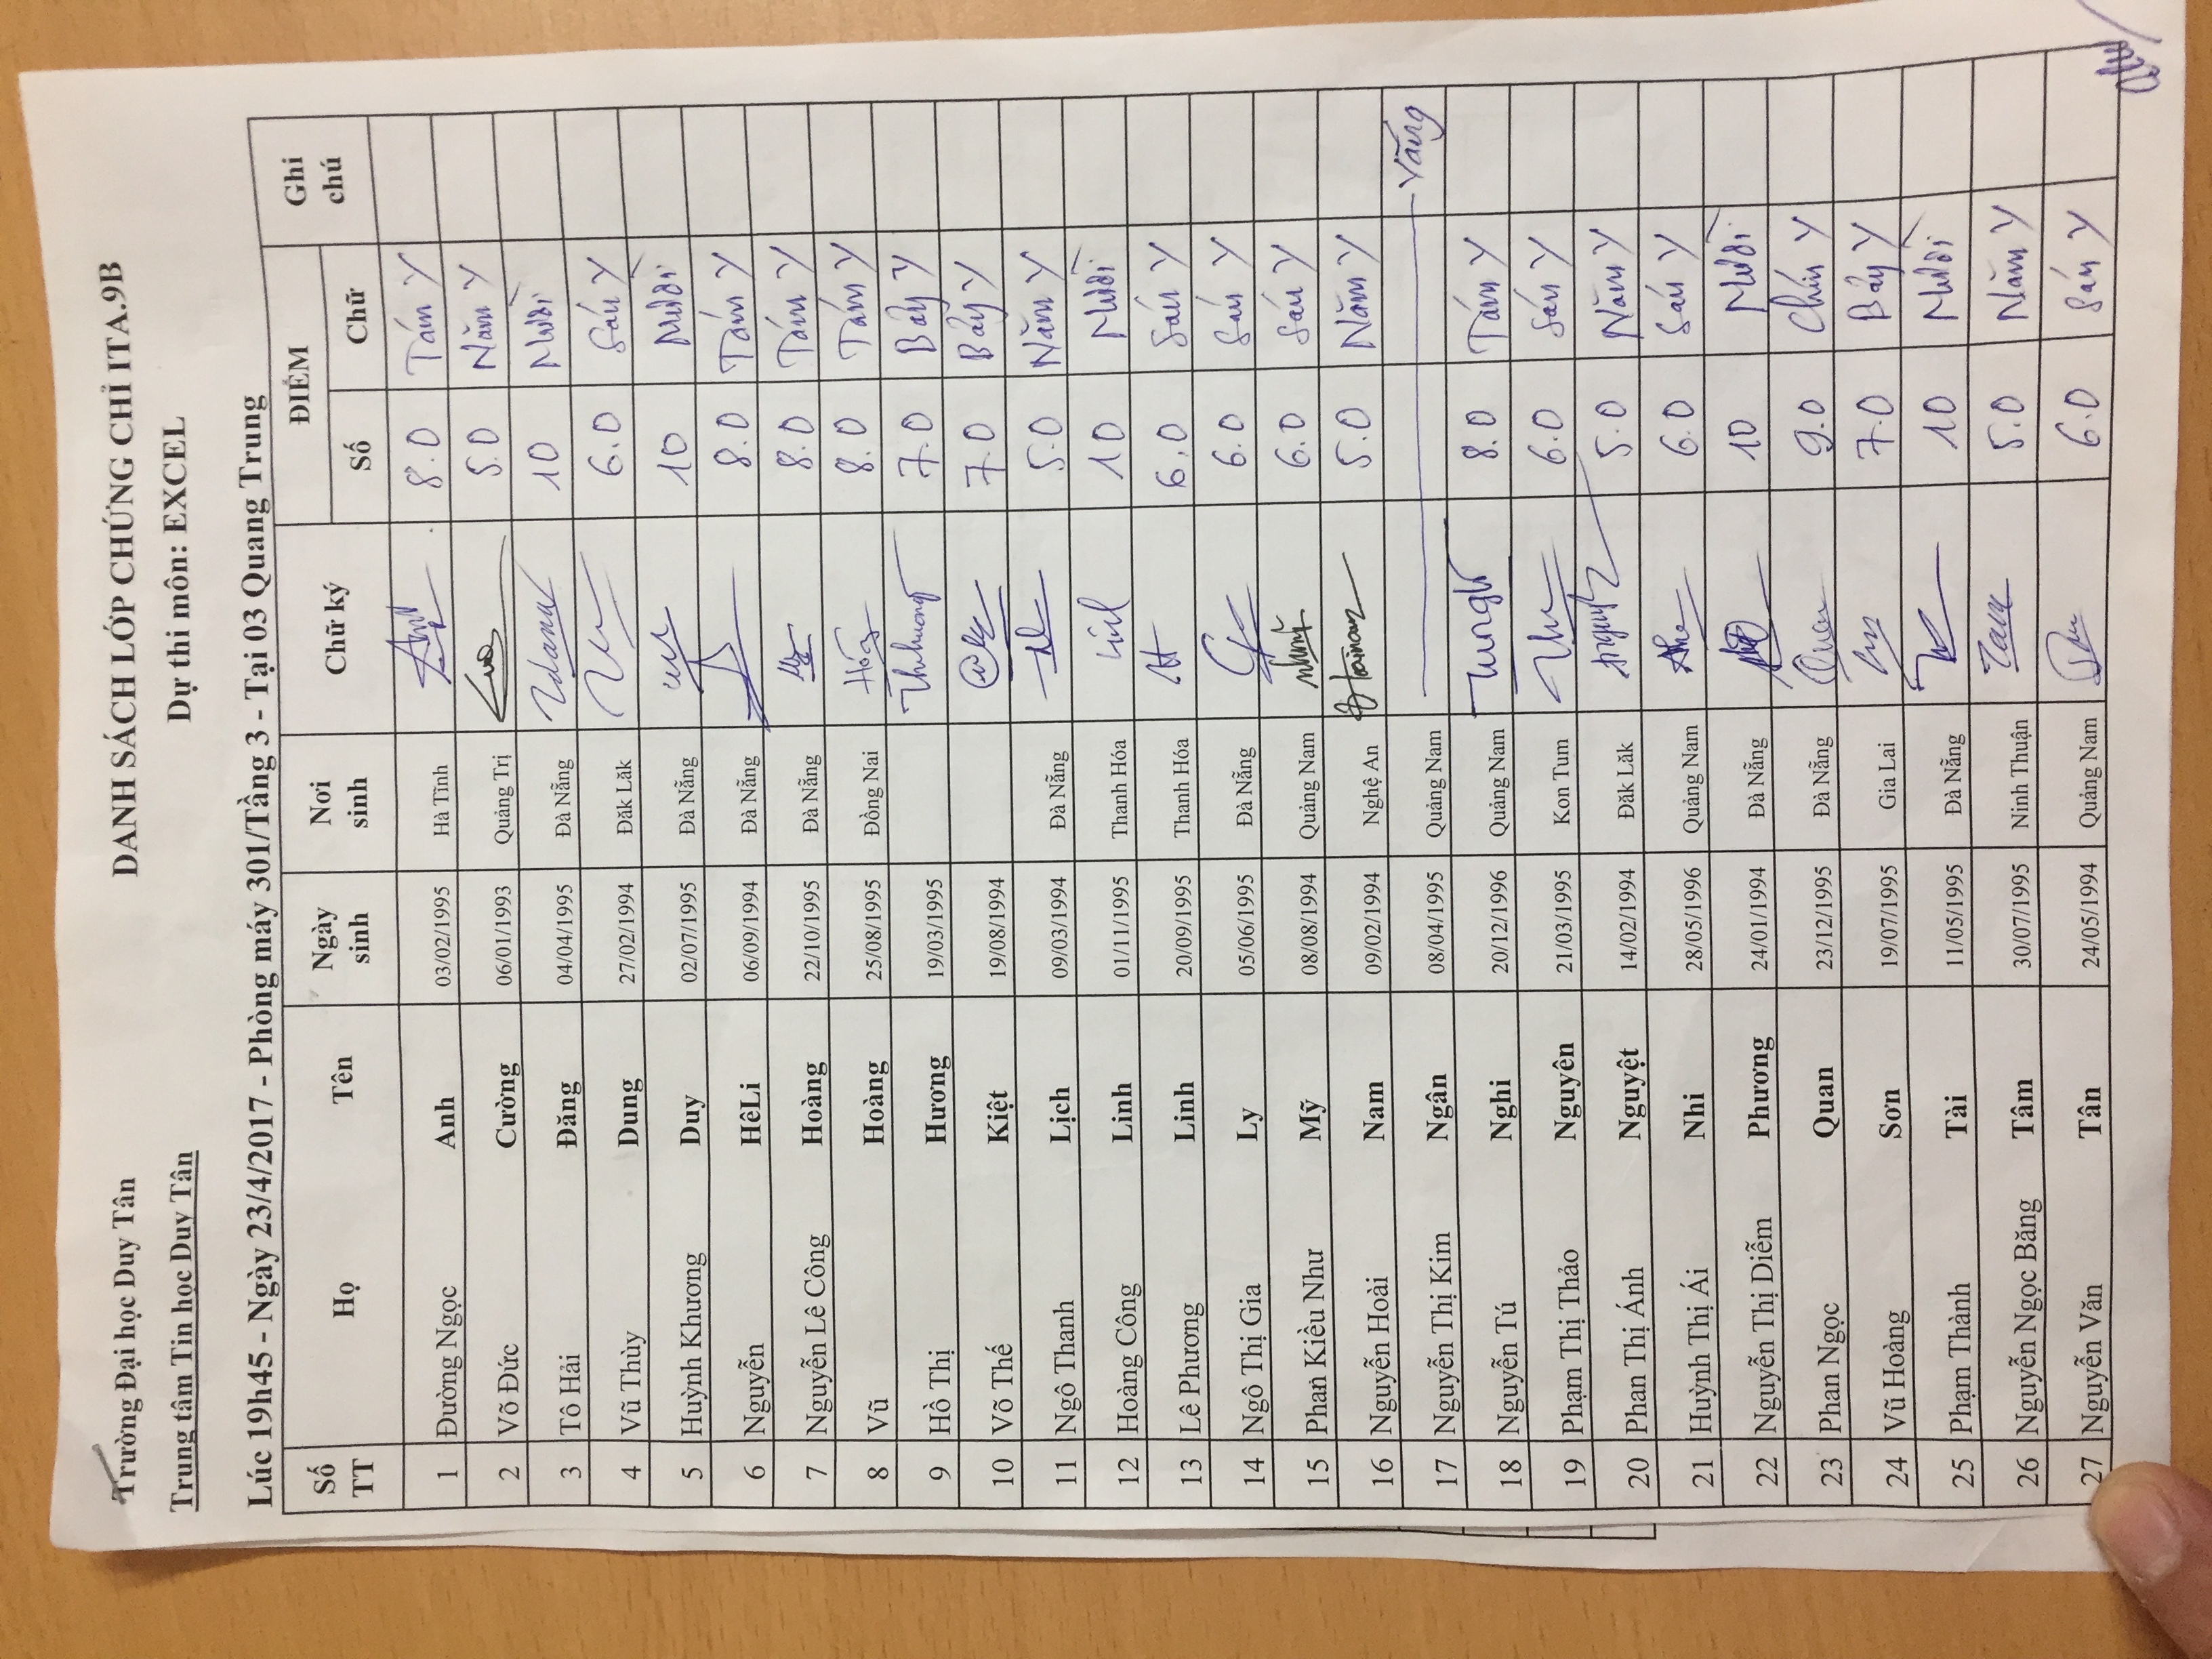 Trường Đại học Duy Tân
DANH SÁCH LỚP CHỨNG CHỈ ITA.9B
Trung tâm Tin học Duy Tân
Dự thi môn: EXCEL
Lúc 19h45 - Ngày 23/4/2017 - Phòng máy 301/Tầng 3 - Tại 03 Quang Trung
Số TT Họ Tên Ngày sinh Nơi sinh Chữ ký ĐIỂM Ghi chú
Số Chữ
1 Đường Ngọc Anh 03/02/1995 Hà Tĩnh 8.0 Tám Y
2 Võ Đức Cường 06/01/1993 Quảng Trị 5.0 Năm Y
3 Tô Hải Đăng 04/04/1995 Đà Nẵng 10 Mười
4 Vũ Thùy Dung 27/02/1994 Đăk Lăk 6.0 Sáu Y
5 Huỳnh Khương Duy 02/07/1995 Đà Nẵng 10 Mười
6 Nguyễn HêLi 06/09/1994 Đà Nẵng 8.0 Tám Y
7 Nguyễn Lê Công Hoàng 22/10/1995 Đà Nẵng 8.0 Tám Y
8 Vũ Hoàng 25/08/1995 Đồng Nai 8.0 Tám Y
9 Hồ Thị Hương 19/03/1995 Thhương 7.0 Bảy Y
10 Võ Thế Kiệt 19/08/1994 7.0 Bảy Y
11 Ngô Thanh Lịch 09/03/1994 Đà Nẵng 5.0 Năm Y
12 Hoàng Công Linh 01/11/1995 Thanh Hóa Linh 10 Mười
13 Lê Phương Linh 20/09/1995 Thanh Hóa 6.0 Sáu Y
14 Ngô Thị Gia Ly 05/06/1995 Đà Nẵng 6.0 Sáu Y
15 Phan Kiều Như Mỹ 08/08/1994 Quảng Nam 6.0 Sáu Y
16 Nguyễn Hoài Nam 09/02/1994 Nghệ An 5.0 Năm Y
17 Nguyễn Thị Kim Ngân 08/04/1995 Quảng Nam Vắng
18 Nguyễn Tú Nghi 20/12/1996 Quảng Nam 8.0 Tám Y
19 Phạm Thị Thảo Nguyên 21/03/1995 Kon Tum 6.0 Sáu Y
20 Phan Thị Ánh Nguyệt 14/02/1994 Đăk Lăk 5.0 Năm Y
21 Huỳnh Thị Ái Nhi 28/05/1996 Quảng Nam 6.0 Sáu Y
22 Nguyễn Thị Diễm Phương 24/01/1994 Đà Nẵng 10 Mười
23 Phan Ngọc Quan 23/12/1995 Đà Nẵng 9.0 Chín Y
24 Vũ Hoàng Sơn 19/07/1995 Gia Lai 7.0 Bảy Y
25 Phạm Thành Tài 11/05/1995 Đà Nẵng 10 Mười
26 Nguyễn Ngọc Băng Tâm 30/07/1995 Ninh Thuận 5.0 Năm Y
27 Nguyễn Văn Tân 24/05/1994 Quảng Nam 6.0 Sáu Y